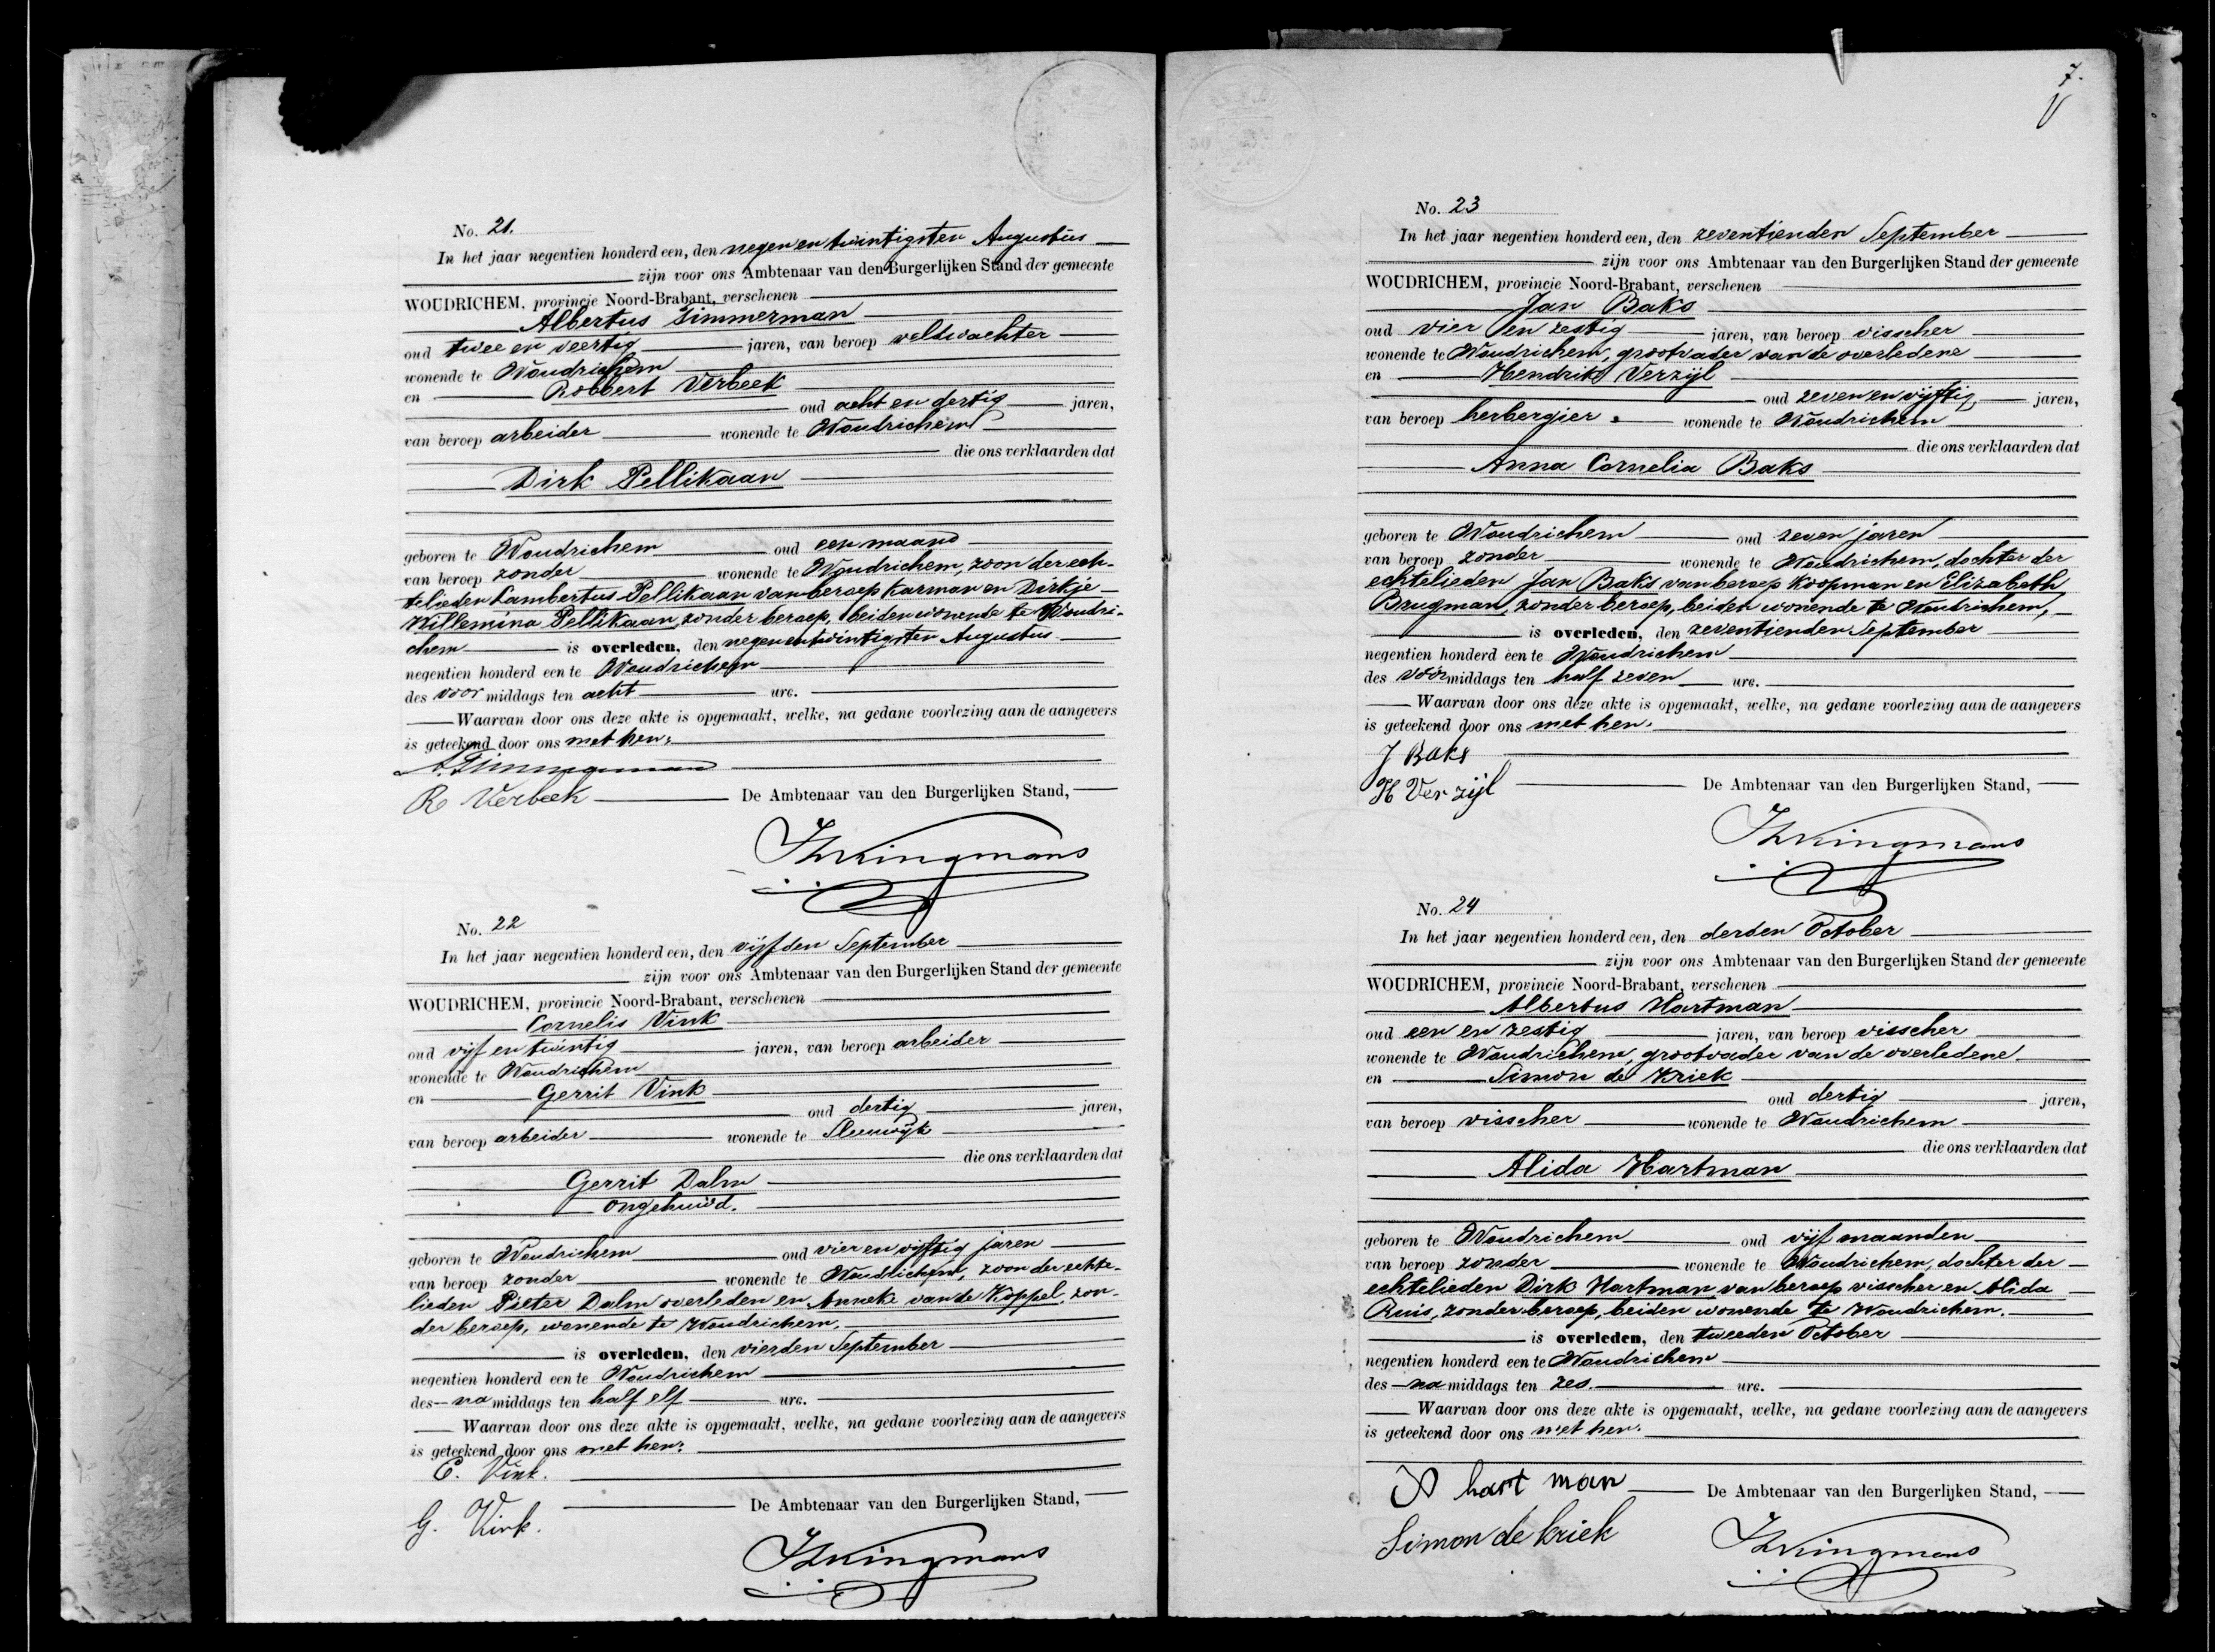 No. 21.
In het jaar negentien honderd een, den negen en twintigsten Augustus
zijn voor ons Ambtenaar van den Burgerlijken Stand der gemeente
WOUDRICHEM, provincie Noord-Brabant, verschenen
Albertus Timmerman
oud twee en veertig jaren, van beroep veldwachter
wonende te Woudrichem
en Robbert Verbeek
oud acht en dertig jaren,
van beroep arbeider wonende te Woudrichem
die ons verklaarden dat
Dirk Pellikaan
geboren te Woudrichem oud een maand
van beroep zonder wonende te Woudrichem, zoon der ech-
telieden Lambertus Pellikaan van beroep karman en Dirkje
Willemina Pellikaan, zonder beroep, beiden wonende te Woudri-
chem is overleden, den negen en twintigsten Augustus
negentien honderd een te Woudrichem
des voor middags ten acht ure.
Waarvan door ons deze akte is opgemaakt, welke, na gedane voorlezing aan de aangevers
is geteekend door ons met hen.
A. Timmerman
R Verbeek De Ambtenaar van den Burgerlijken Stand,
Kingmans
No. 22
In het jaar negentien honderd een, den vijfden September
zijn voor ons Ambtenaar van den Burgerlijken Stand der gemeente
WOUDRICHEM, provincie Noord-Brabant, verschenen
Cornelis Vink
oud vijf en twintig jaren, van beroep arbeider
wonende te Woudrichem
en Gerrit Vink
oud dertig jaren,
van beroep arbeider wonende te Sleeuwijk
die ons verklaarden dat
Gerrit Dalm
ongehuwd.
geboren te Woudrichem oud vier en vijftig jaren
van beroep zonder wonende te Woudrichem, zoon der echte-
lieden Pieter Dalm overleden en Anneke van de Koppel, zon-
der beroep, wonende te Woudrichem.
is overleden, den vierden September
negentien honderd een te Woudrichem
des na middags ten half elf ure.
Waarvan door ons deze akte is opgemaakt, welke, na gedane voorlezing aan de aangevers
is geteekend door ons met hen.
C. Vink.
G. Vink. De Ambtenaar van den Burgerlijken Stand,
Kingmans
7.
No. 23
In het jaar negentien honderd een, den zeventienden September
zijn voor ons Ambtenaar van den Burgerlijken Stand der gemeente
WOUDRICHEM, provincie Noord-Brabant, verschenen
Jan Baks
oud vier en zestig jaren, van beroep visscher
wonende te Woudrichem, grootvader van de overledene
en Hendrik Verzijl
oud zeven en vijftig jaren,
van beroep herbergier wonende te Woudrichem
die ons verklaarden dat
Anna Cornelia Baks
geboren te Woudrichem oud zeven jaren
van beroep zonder wonende te Woudrichem, dochter der
echtelieden Jan Baks van beroep koopman en Elizabeth
Brugman, zonder beroep, beiden wonende te Woudrichem,
is overleden, den zeventienden September
negentien honderd een te Woudrichem
des voor middags ten half zeven ure.
Waarvan door ons deze akte is opgemaakt, welke, na gedane voorlezing aan de aangevers
is geteekend door ons met hen.
J Baks
H Verzijl De Ambtenaar van den Burgerlijken Stand,
Kingmans
No. 24
In het jaar negentien honderd een, den derden October
zijn voor ons Ambtenaar van den Burgerlijken Stand der gemeente
WOUDRICHEM, provincie Noord-Brabant, verschenen
Albertus Hartman
oud een en zestig jaren, van beroep visscher
wonende te Woudrichem, grootvader van de overledene
en Simon de Kriek
oud dertig jaren,
van beroep visscher wonende te Woudrichem
die ons verklaarden dat
Alida Hartman
geboren te Woudrichem oud vijf maanden
van beroep zonder wonende te Woudrichem, dochter der
echtelieden Dirk Hartman van beroep visscher en Alida
Ruis, zonder beroep, beiden wonende te Woudrichem.
is overleden, den tweeden October
negentien honderd een te Woudrichem
des na middags ten zes. ure.
Waarvan door ons deze akte is opgemaakt, welke, na gedane voorlezing aan de aangevers
is geteekend door ons met hen.
A hart man De Ambtenaar van den Burgerlijken Stand,
Simon de kriek
Kingmans